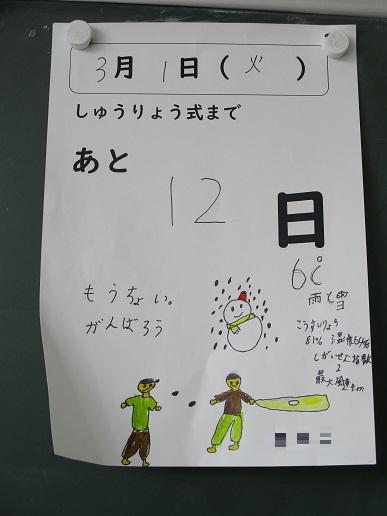 3月1日(火)
しゅうりょう式まで
あと
12日
6℃
もうちょい。
がんばろう
雨と雪
こうすいりょう
81%
しがいせん指数
2
最大風速